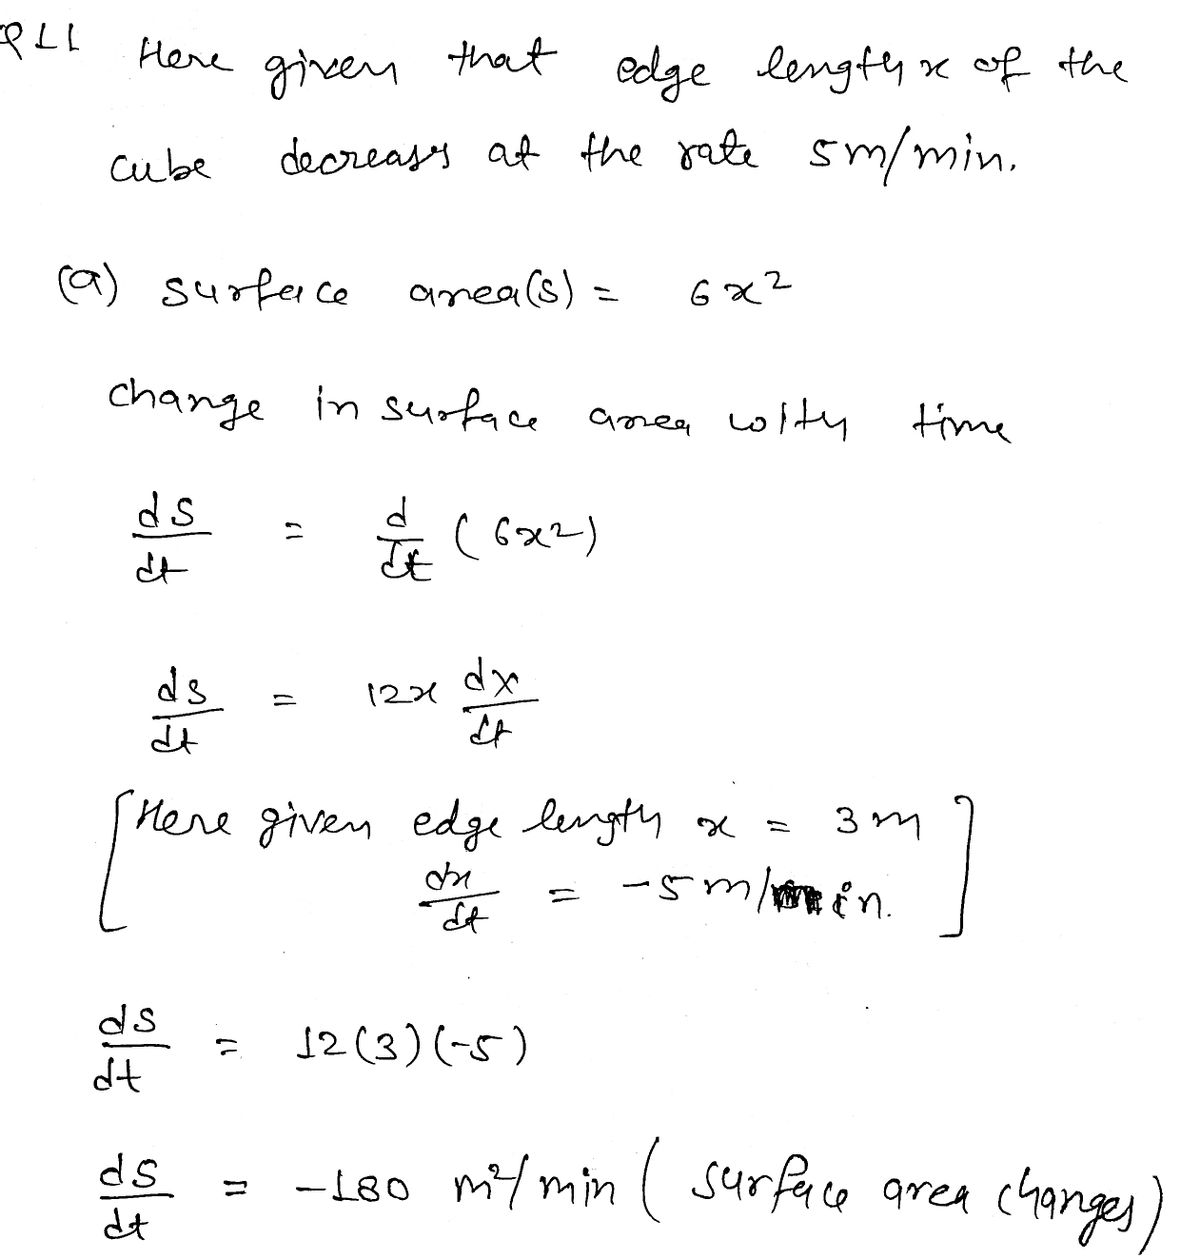 Q11 Here given that edge length x of the
cube decreases at the rate 5m/min.
(a) surface area(s) = 6x²
change in surface area with time
dS/dt = d/dt (6x²)
ds/dt = 12x dx/dt
[Here given edge length x = 3m
dx/dt = -5m/min.]
ds/dt = 12(3)(-5)
ds/dt = -180 m²/min (surface area changes)